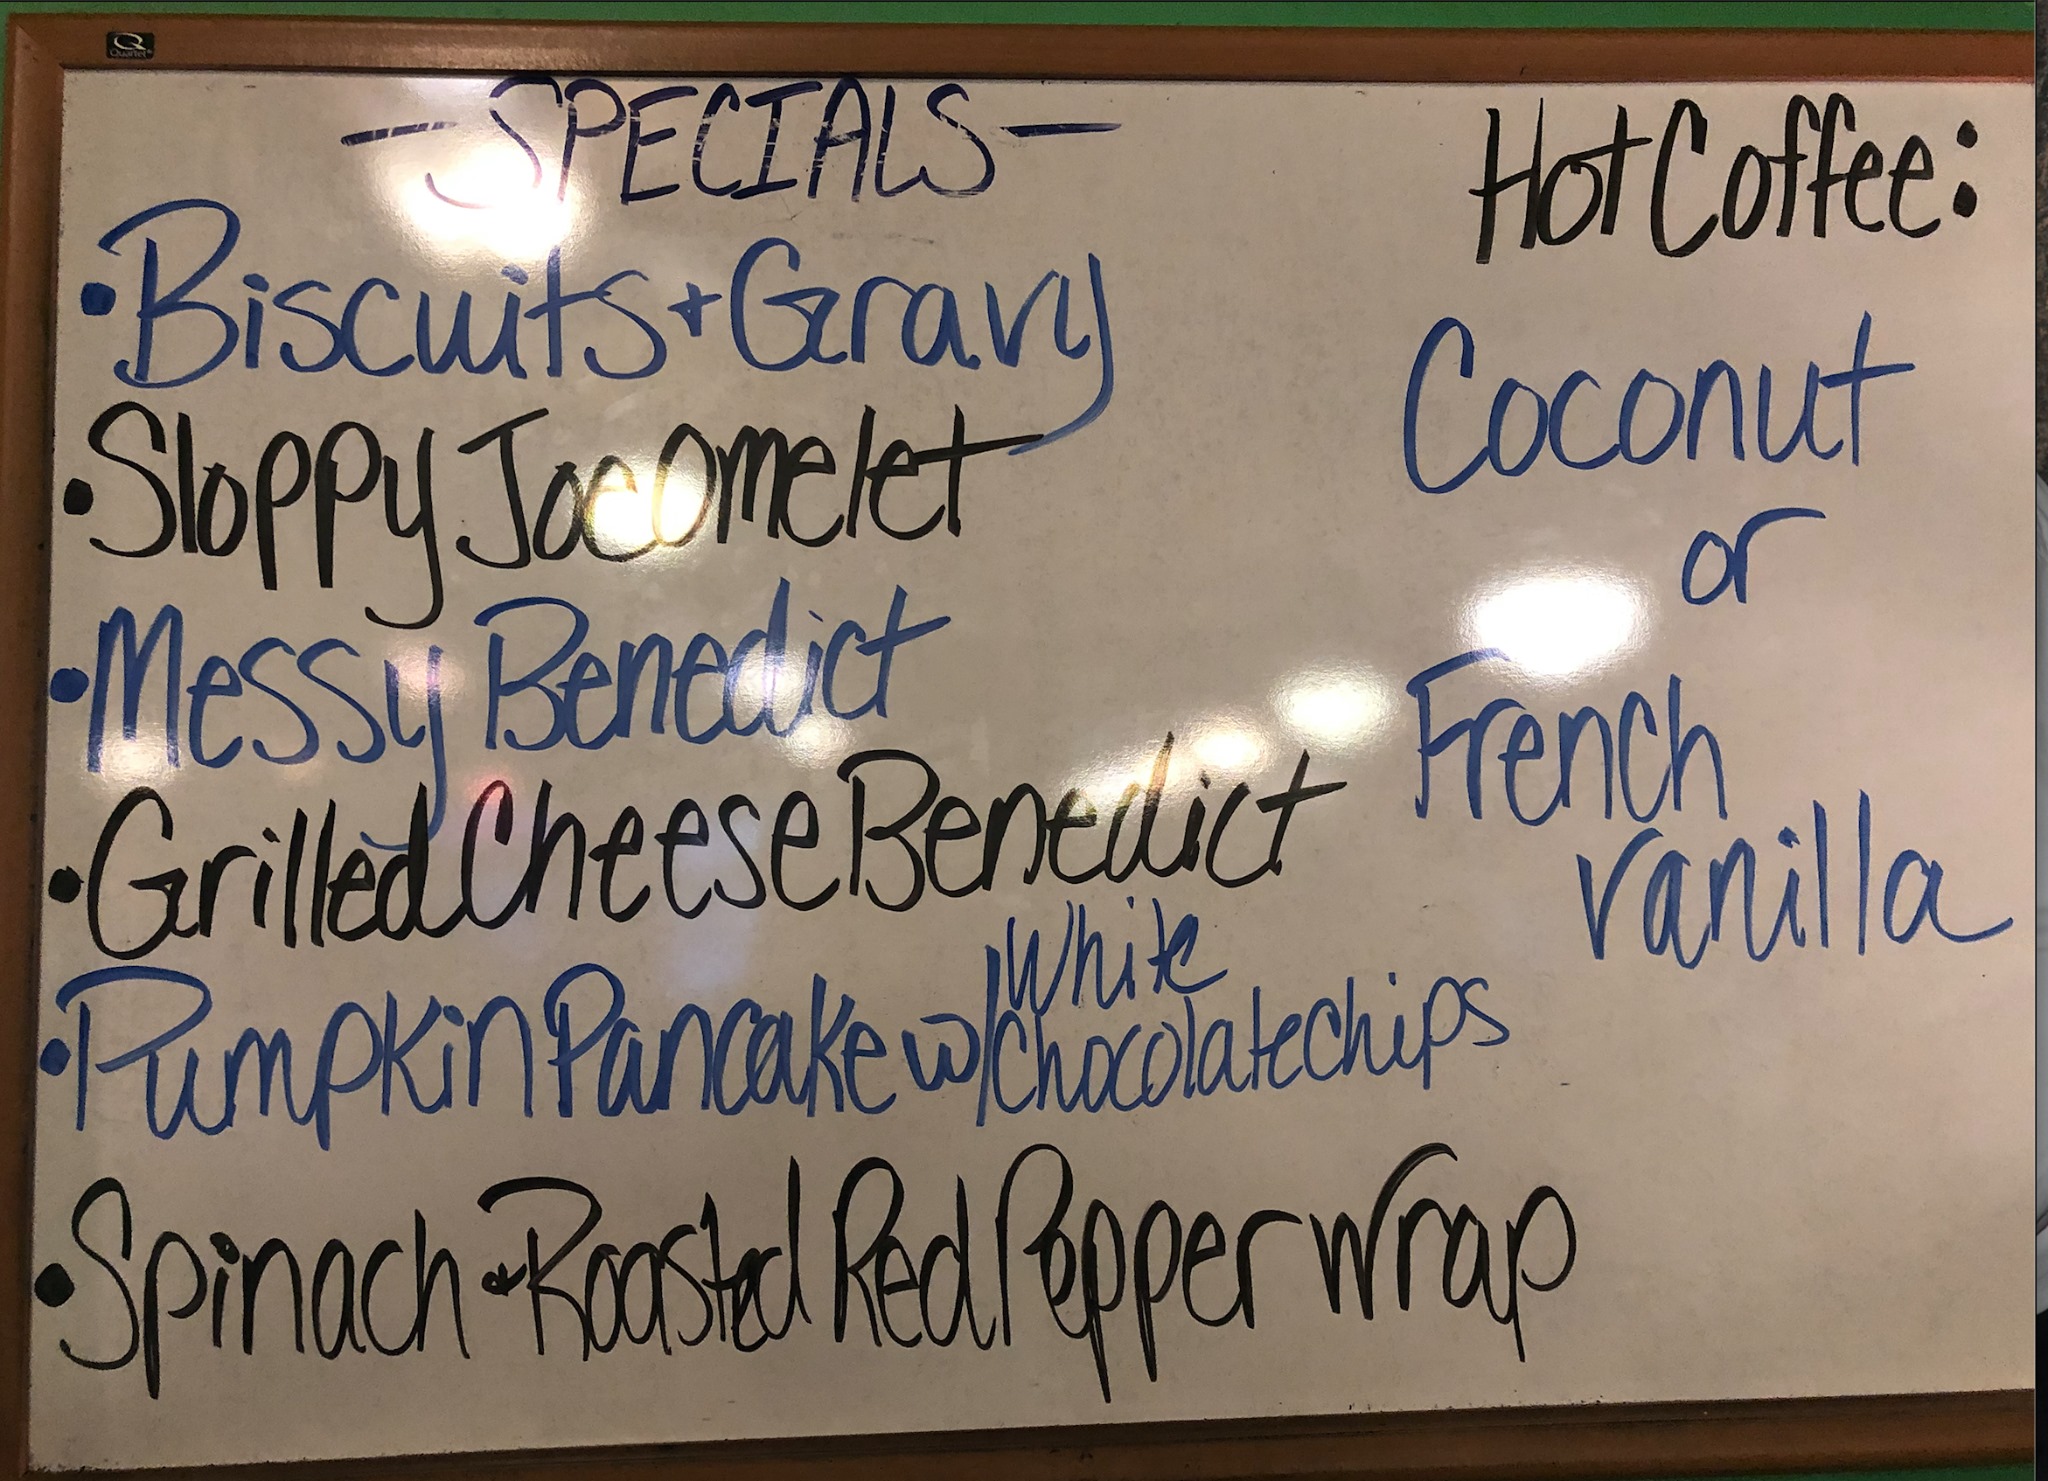 Q
Quartet
—SPECIALS—
•Biscuits+Gravy
•Sloppy Joe Omelet
•Messy Benedict
•Grilled Cheese Benedict
•Pumpkin Pancake w/ White
chocolate chips
•Spinach & Roasted Red Pepper Wrap
Hot Coffee:
Coconut
or
French
vanilla